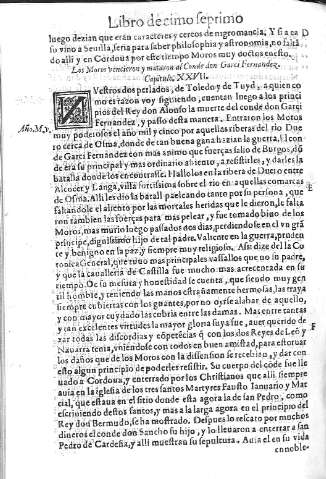 Libro décimo septimo
luego dezian que eran caracteres y cercos de nigromancia. Y si a ca
so vino a Seuilla, seria para saber philosophia y astronomia, no falta
do alli y en Cordoua por este tiempo Moros muy doctos enesto.
Los Moros vencieron y mataron al Conde don Garci Fernandez.
Capitulo. XXVII.
Año. M.v.
Vestros dos perlados, de Toledo y de Tuyd, a quien co
mo es razon voy siguiendo, cuentan luego a los princi
pios del Rey don Alonso la muerte del conde don Garci
Fernandez, y passo desta manera. Entraron los Moros
muy poderosos el año mil y cinco por aquellas riberas del rio Due
ro cerca de Osma, donde de tan buena gana hazian la guerra. El con
de Garci Fernandez con mas animo que fuerças salio de Burgos, dō
de era su principal y mas ordinario assiento, a resistirles, y darles la
batalla donde los encontrasse. Hallolos en la ribera de Duero entre
Alcocer y Langa, villa fortissima sobre el rio en aquellas comarcas
de Osma. Alli les dio la batalla peleando tanto por su persona, que
faltandole el aliento por las mortales heridas que le dieron, le falta
ron tambien las fuerças para mas pelear, y fue tomado biuo de los
Moros, mas murio luego passados dos dias, perdiendose en el vn grā
principe, dignissimo hijo de tal padre. Valiente en la guerra, pruden
te y benigno en la paz, y siempre muy religioso. Assi dize del la Co
ronica General, que tuuo mas principales vassallos que no su padre,
y que la caualleria de Castilla fue mucho mas acrecentada en su
tiempo. De su mesura y honestidad se cuenta, que siendo muy gen
til hombre, y teniendo las manos estrañamente hermosas, las traya
siempre cubiertas con los guantes, por no oyrse alabar de aquello,
y con mayor cuydado las cubria entre las damas. Mas entre tantas
y tan excelentes virtudes la mayor gloria suya fue, auer querido de
xar todas las discordias y cōpetēcias q̄ con los dos Reyes de Leō y
Nauarra tenia, viniendose con todos en buen amistad, para estoruar
los daños que de los Moros con la dissension se recebian, y dar con
esto algun principio de poderles resistir. Su cuerpo del cōde fue lle
uado a Cordoua, y enterrado por los Christianos que alli siempre
auia en la iglesia de los tres santos Martyres Fausto Ianuario y Mar
cial, que estaua en el sitio donde esta agora la de san Pedro, como
escriuiendo destos santos, y mas a la larga agora en el principio del
Rey don Bermudo, se ha mostrado. Despues lo rescato por muchos
dineros el conde don Sancho su hijo, y lo lleuaron a enterrar a san
Pedro de Cardeña, y alli muestran su sepultura. Auia el en su vida
ennoble-